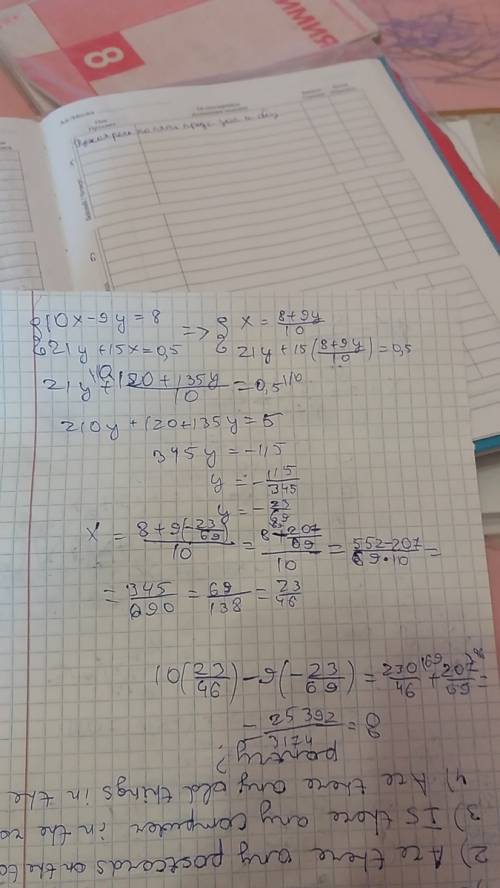 ХИМИЯ
8
6
{10x-9y=8 => { x = \frac{8+9y}{10}
{21y+15x=0,5 { 21y+15(\frac{8+9y}{10})=0,5
21y^{\10} + \frac{120+135y}{10} = 0,5^{\10}
210y+120+135y=5
345y=-115
y=-\frac{115}{345}
y=-\frac{23}{69}
x = \frac{8+9(-\frac{23}{69})}{10} = \frac{8-\frac{207}{69}}{10} = \frac{552-207}{69•10} =
= \frac{345}{690} = \frac{69}{138} = \frac{23}{46}
10(\frac{23}{46})-9(-\frac{23}{69})=\frac{230}{46}^{(69}+\frac{207}{69}^{46}=
= \frac{25392}{3174} = 8
2) Are there any postcards on the
3) IS there any computer in the
4) Are there any old things in the
pantry?